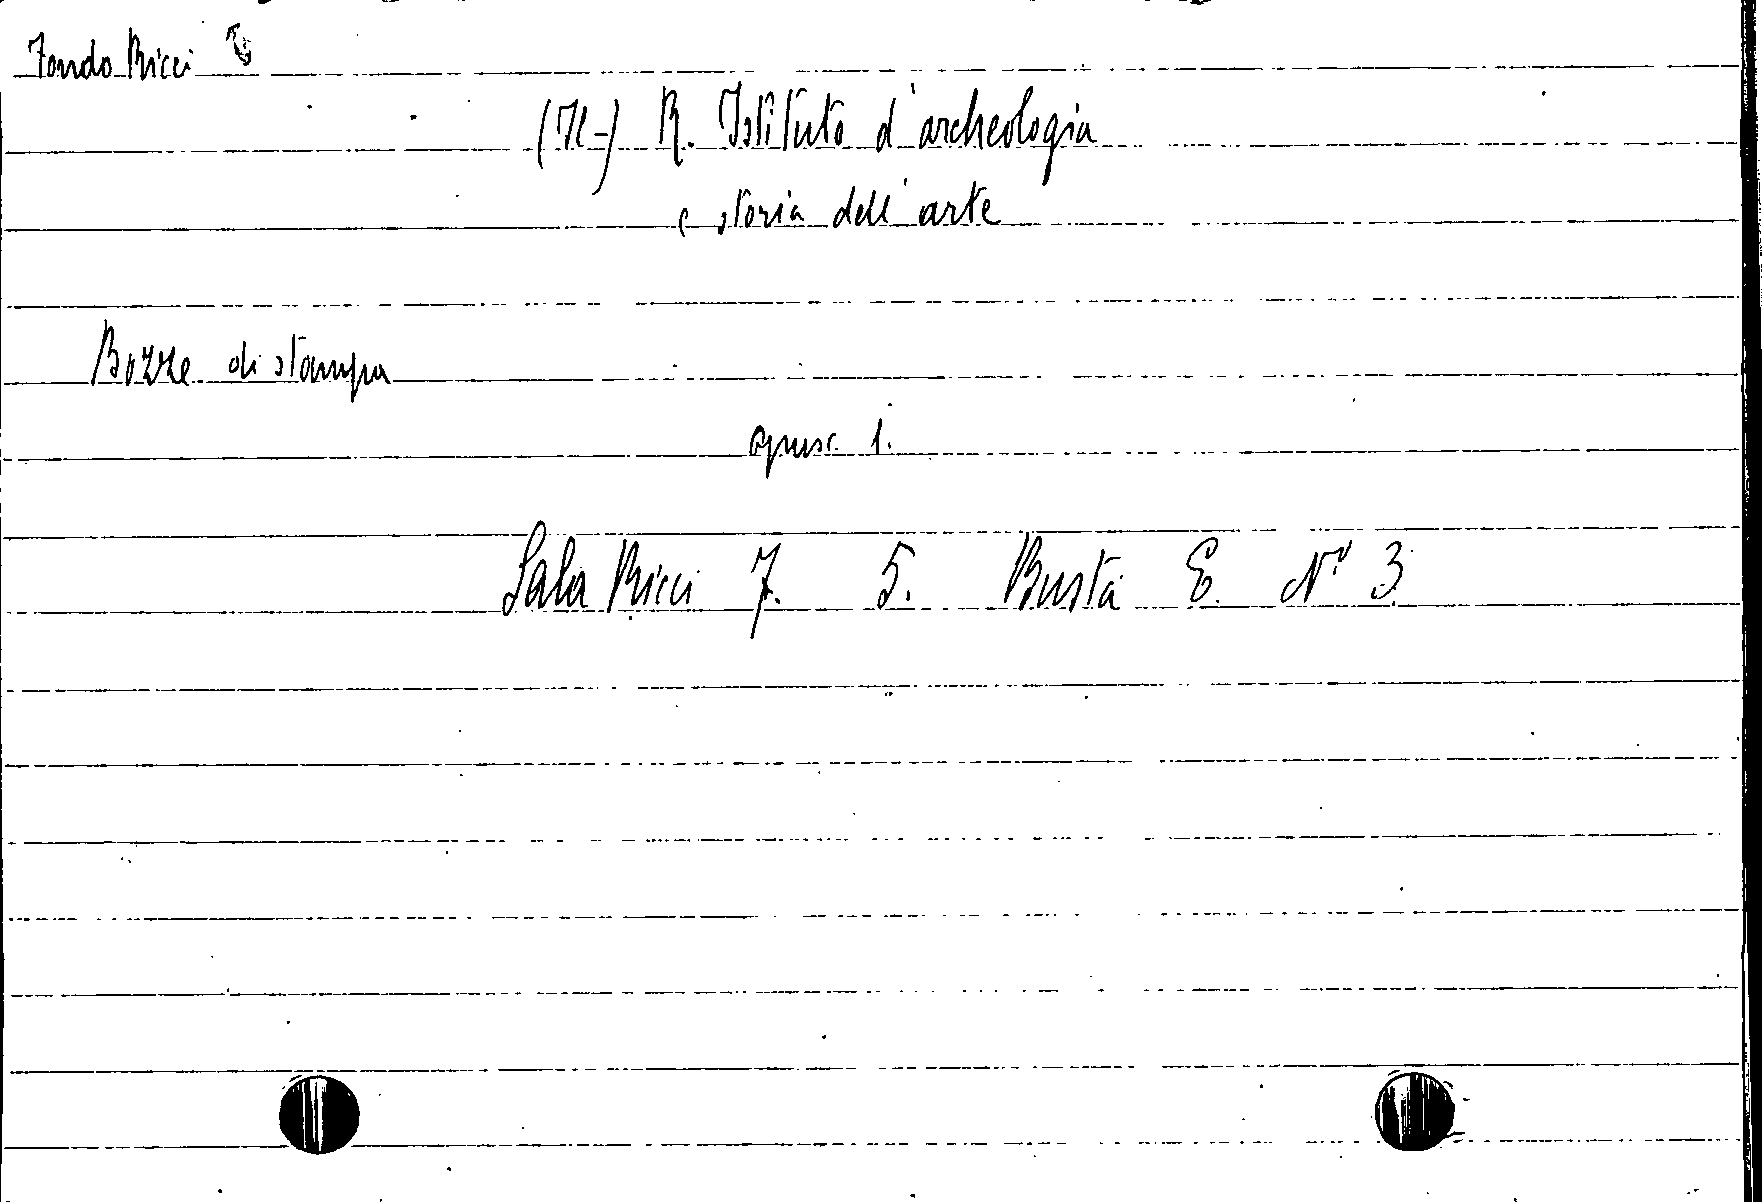 Fondo Ricci
(Il-) R. Istituto d'archeologia
e storia dell'arte
Bozze di stampa
opusc. 1.
Sala Ricci 7. 5. Busta E. N° 3.